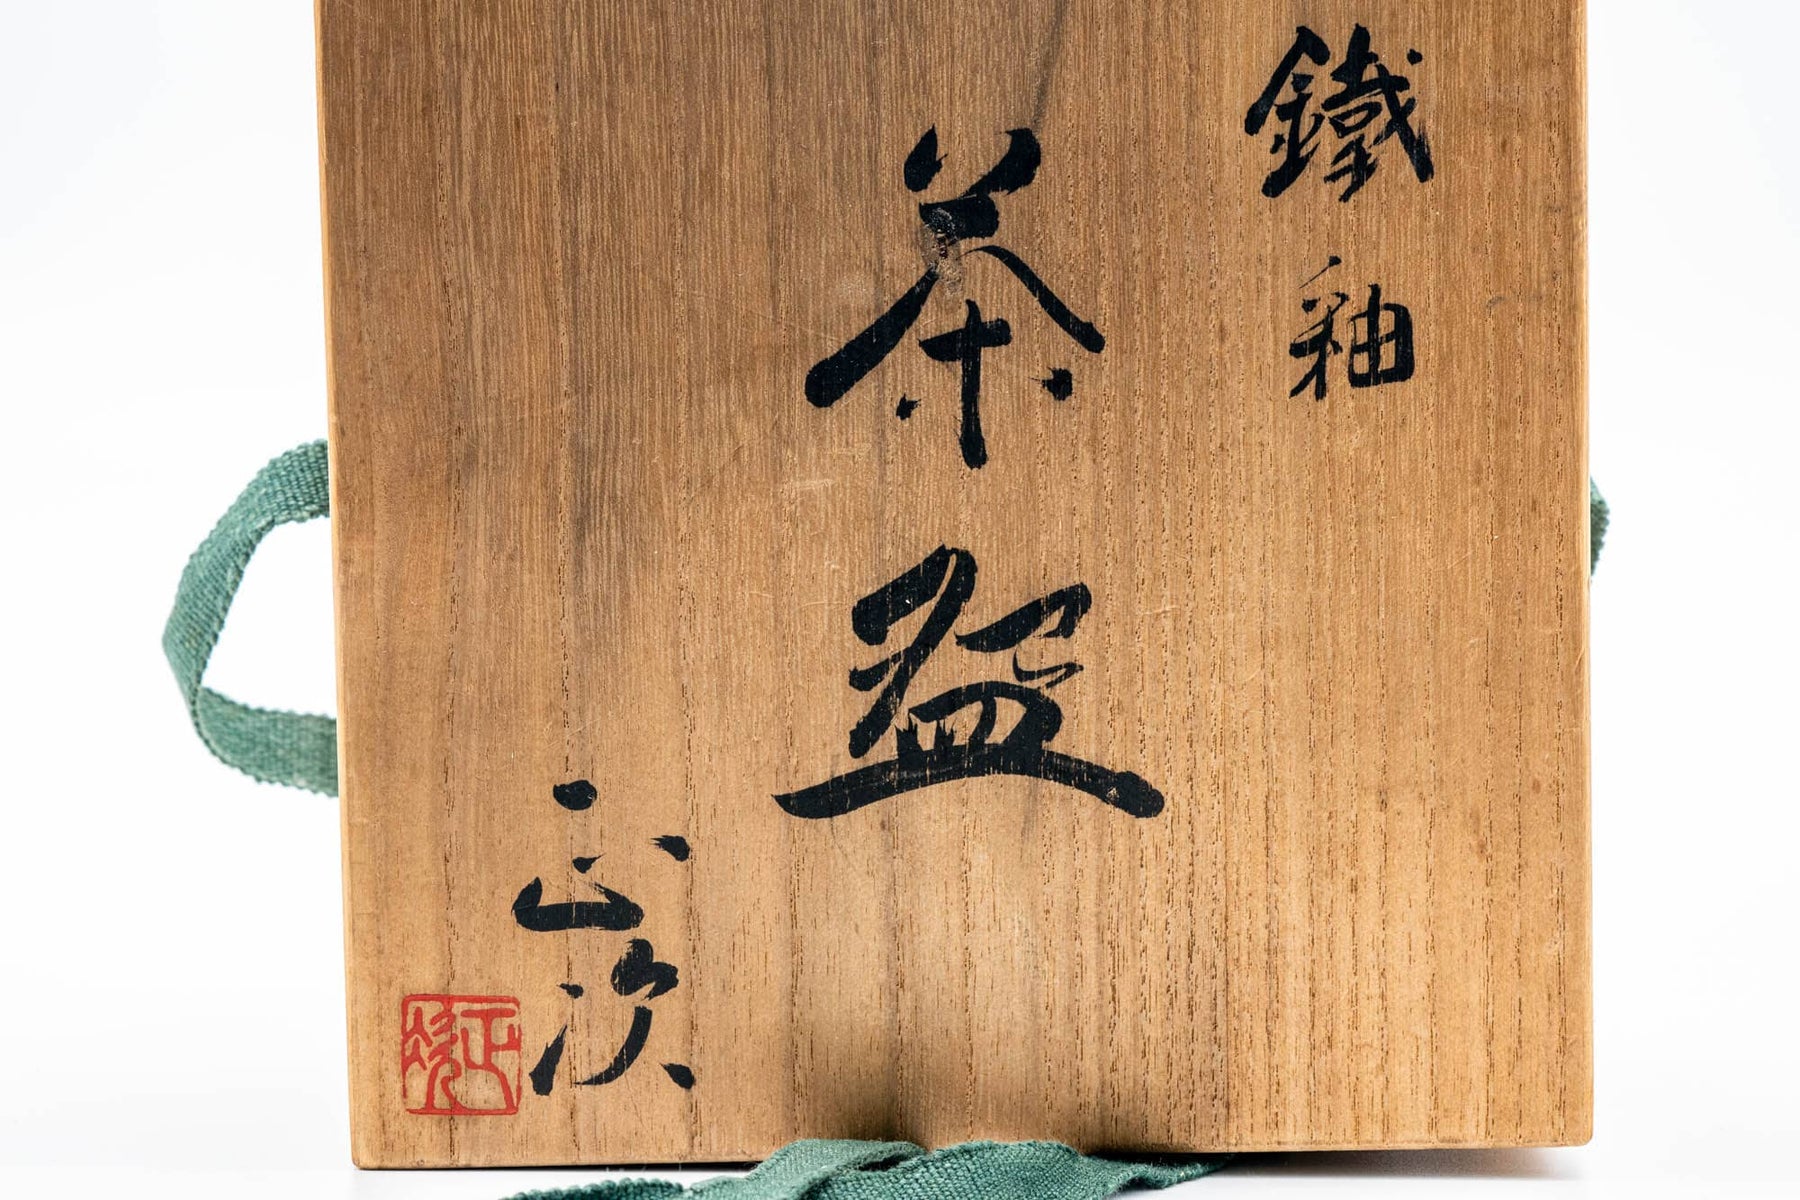 鐵釉
茶盌
正次